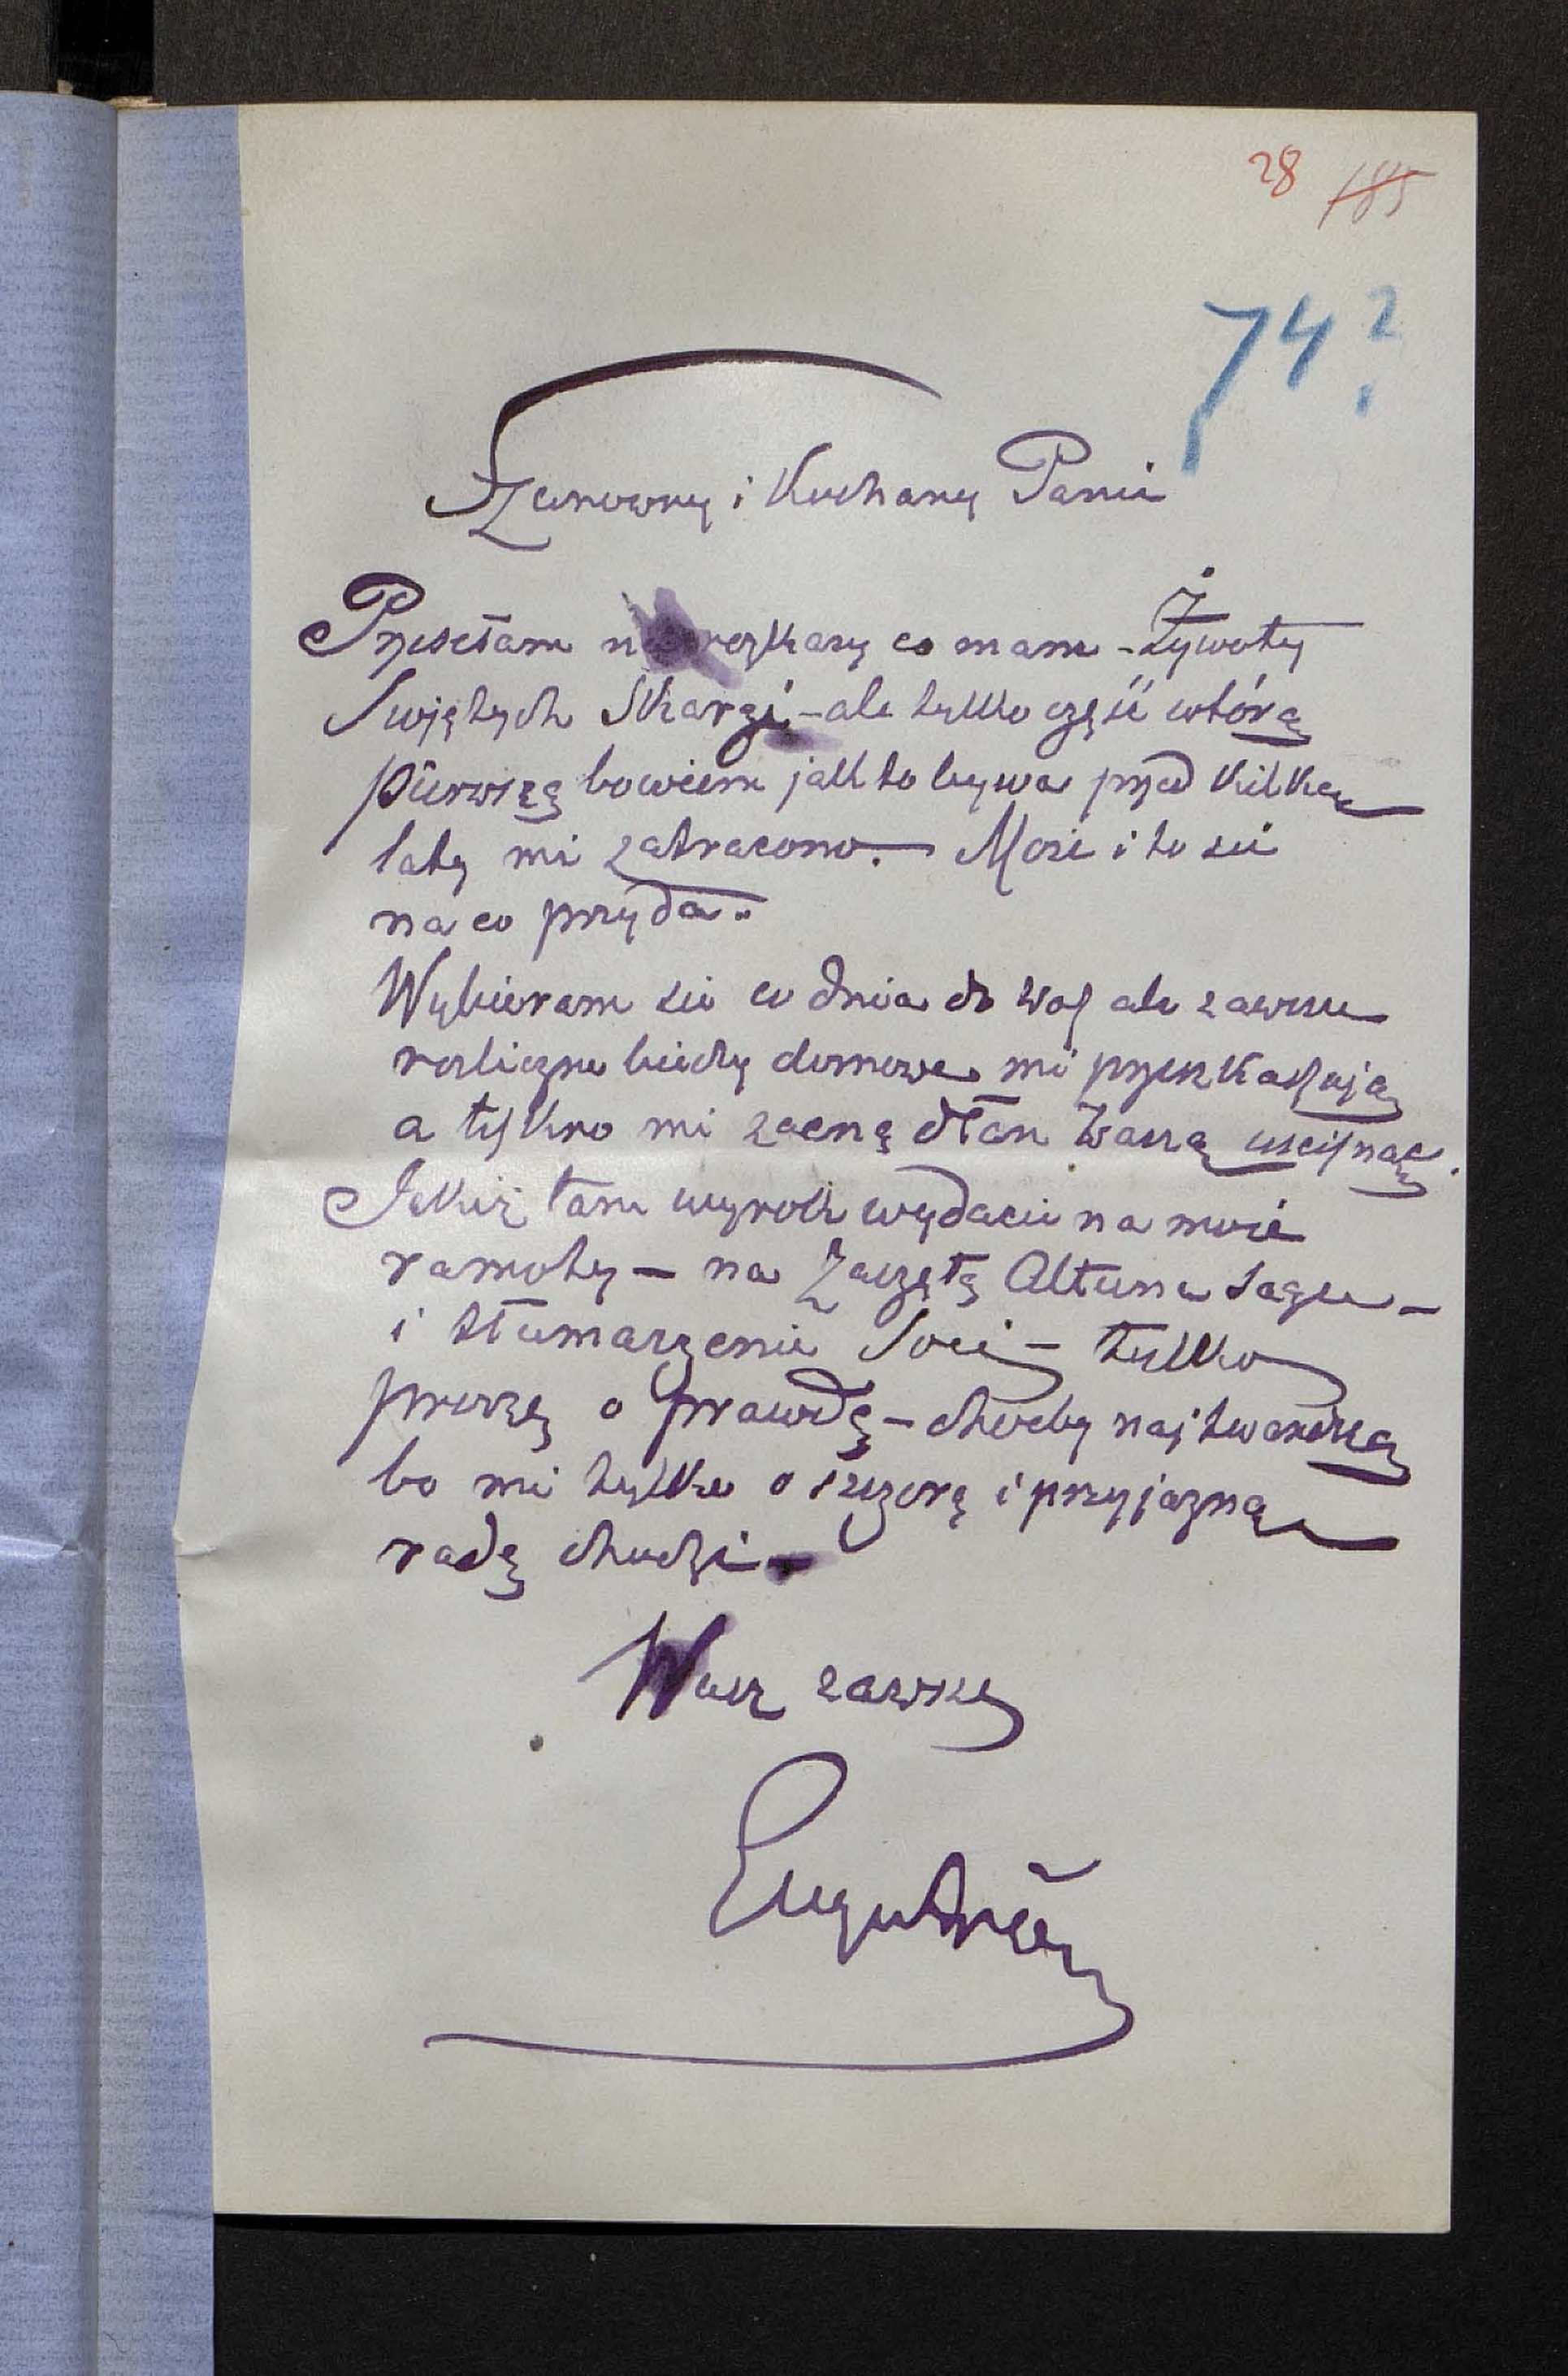 28 185
74?
Szanowny i Kochany Panie
Przesełam na rozkazy co mam – Żywoty
Swiętych Skargi – ale tylko częśc wtórą
pierwszą bowiem jak to bywa przed kilku
laty mi zatracono. – Może i to sie
na co przyda.
Wybieram sie co dnia do Was ale zawsze
rozliczne biedy domowe mi przeszkadzają
a tęskno mi zacną dłoń Waszą uscisnąć.
Jakiż tam wyrok wydacie na moie
ramoty – na Zaczętą Altuna Sagu –
i tłumarzenie – tylko
proszę o prawdę – choćby najtwardszą
bo mi tylko o szczerą i przyjazną
radę chodzi –
Wasz zawsze